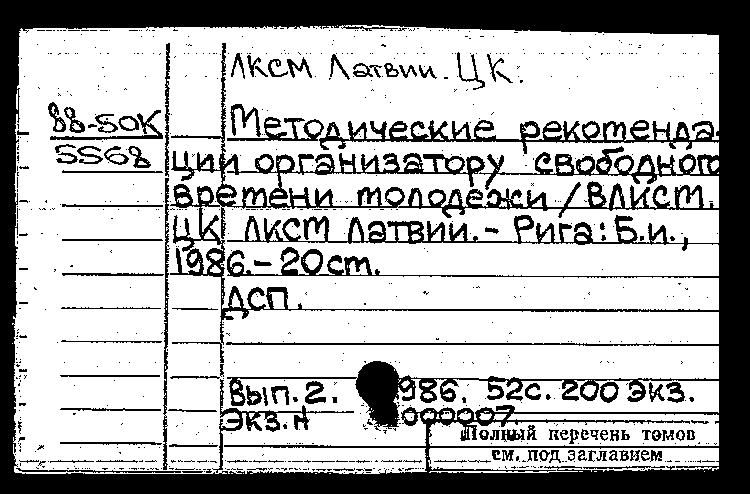 ЛКСМ Латвии. ЦК.
88-50К
5568
Методические рекоменда-
ции организатору свободного
времени молодежи / ВЛКСМ.
ЦК ЛКСМ Латвии. - Рига: Б.и.,
1986. - 20 см.
ДСП.
Вып. 2. 1986. 52с. 200 экз.
Экз. N 000007.
Полный перечень томов
см. под заглавием